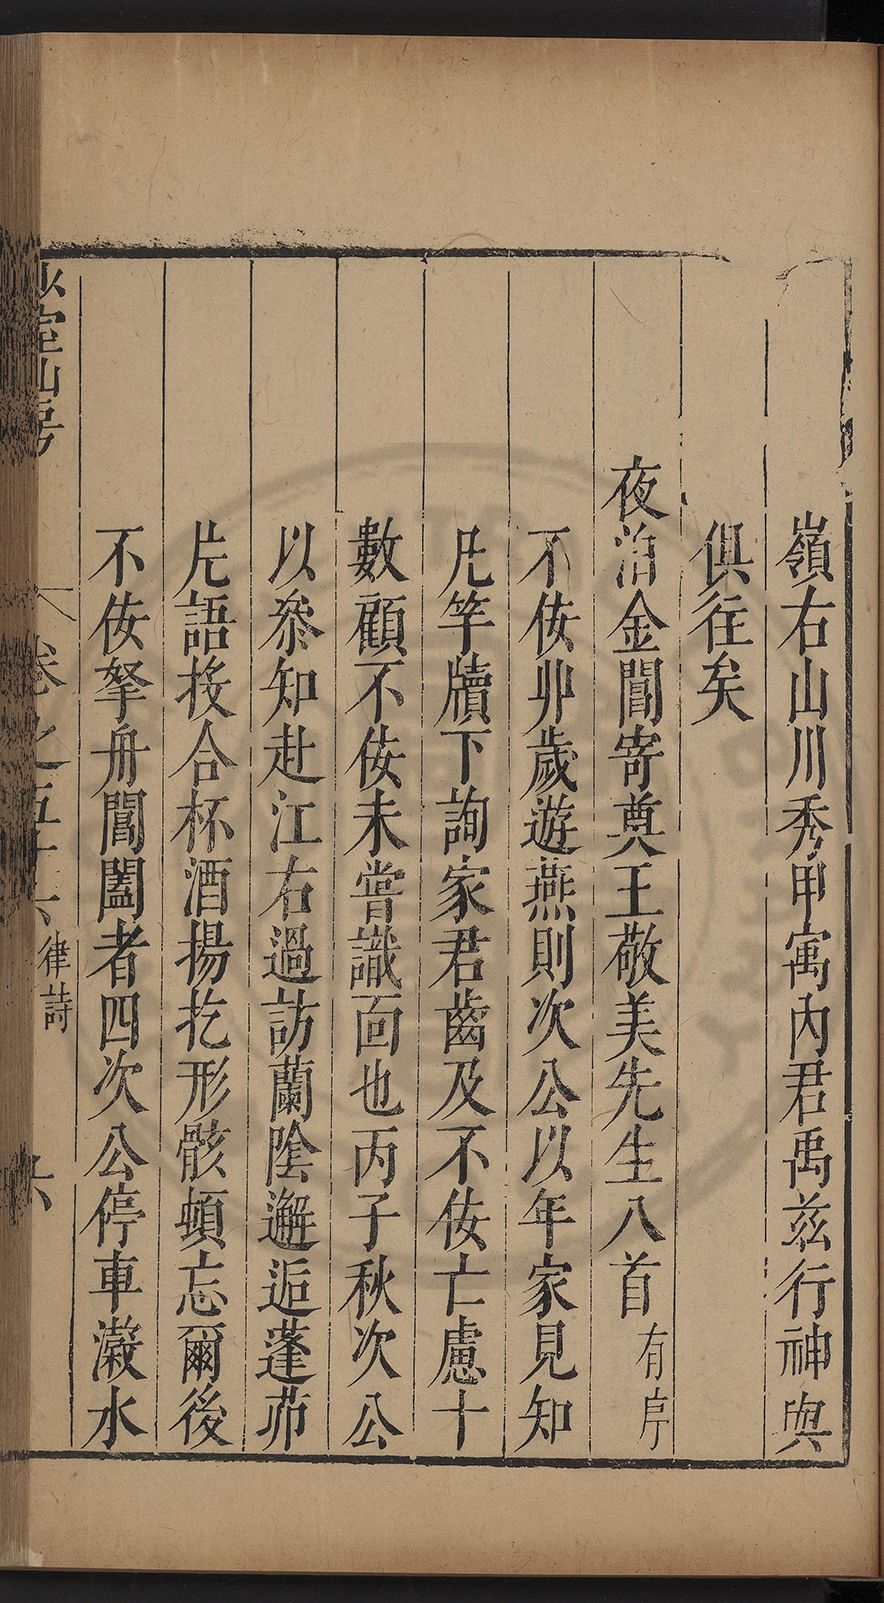 嶺右山川秀甲寓內君禹茲行神與
俱往矣
夜泊金閶寄奠王敬美先生八首有序
不佞丱歲遊燕則次公以年家見知
凡竿牘下詢家君齒及不佞亡慮十
數顧不佞未嘗識面也丙子秋次公
以叅知赴江右過訪蘭陰邂逅蓬茆
片語投合杯酒揚扢形骸頓忘爾後
不佞拏舟閶闔者四次公停車瀫水
少室山房
卷之五十六 律詩 六